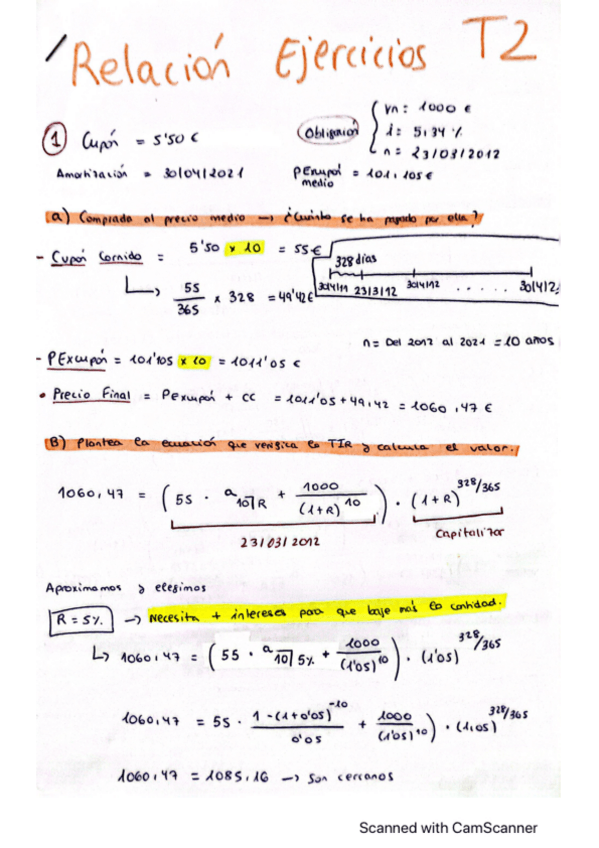 Relación Ejercicios T2
① Cupón = 5'50 €
Obligación { Vn: 1000 €
i: 5,34 %
n: 23/03/2012
Amortización = 30/04/2021
PExcupón medio = 101,105€
a) Comprada al precio medio → ¿Cuánto se ha pagado por ella?
- Cupón Corrido = 5'50 x 10 = 55€
↳ 55/365 x 328 = 49'42€
328 días
30/4/11 23/3/12 30/4/12 ..... 30/4/2
n = Del 2012 al 2021 = 10 años
- PExcupón = 101'105 x 10 = 1011'05 €
• Precio Final = Pexcupón + CC = 1011'05 + 49,42 = 1060,47 €
B) Plantea la ecuación que verifica la TIR y calcula el valor.
1060,47 = (55 · a10┐R + 1000/(1+R)^10) · (1+R)^328/365
23/03/2012
Capitalizar
Aproximamos y elegimos
R = 5% → Necesita + intereses para que baje más la cantidad.
↳ 1060,47 = (55 · a10┐5% + 1000/(1'05)^10) · (1'05)^328/365
1060,47 = 55 · 1-(1+0'05)^-10/0'05 + 1000/(1'05)^10) · (1,05)^328/365
1060,47 = 1085,16 → Son cercanos
Scanned with CamScanner